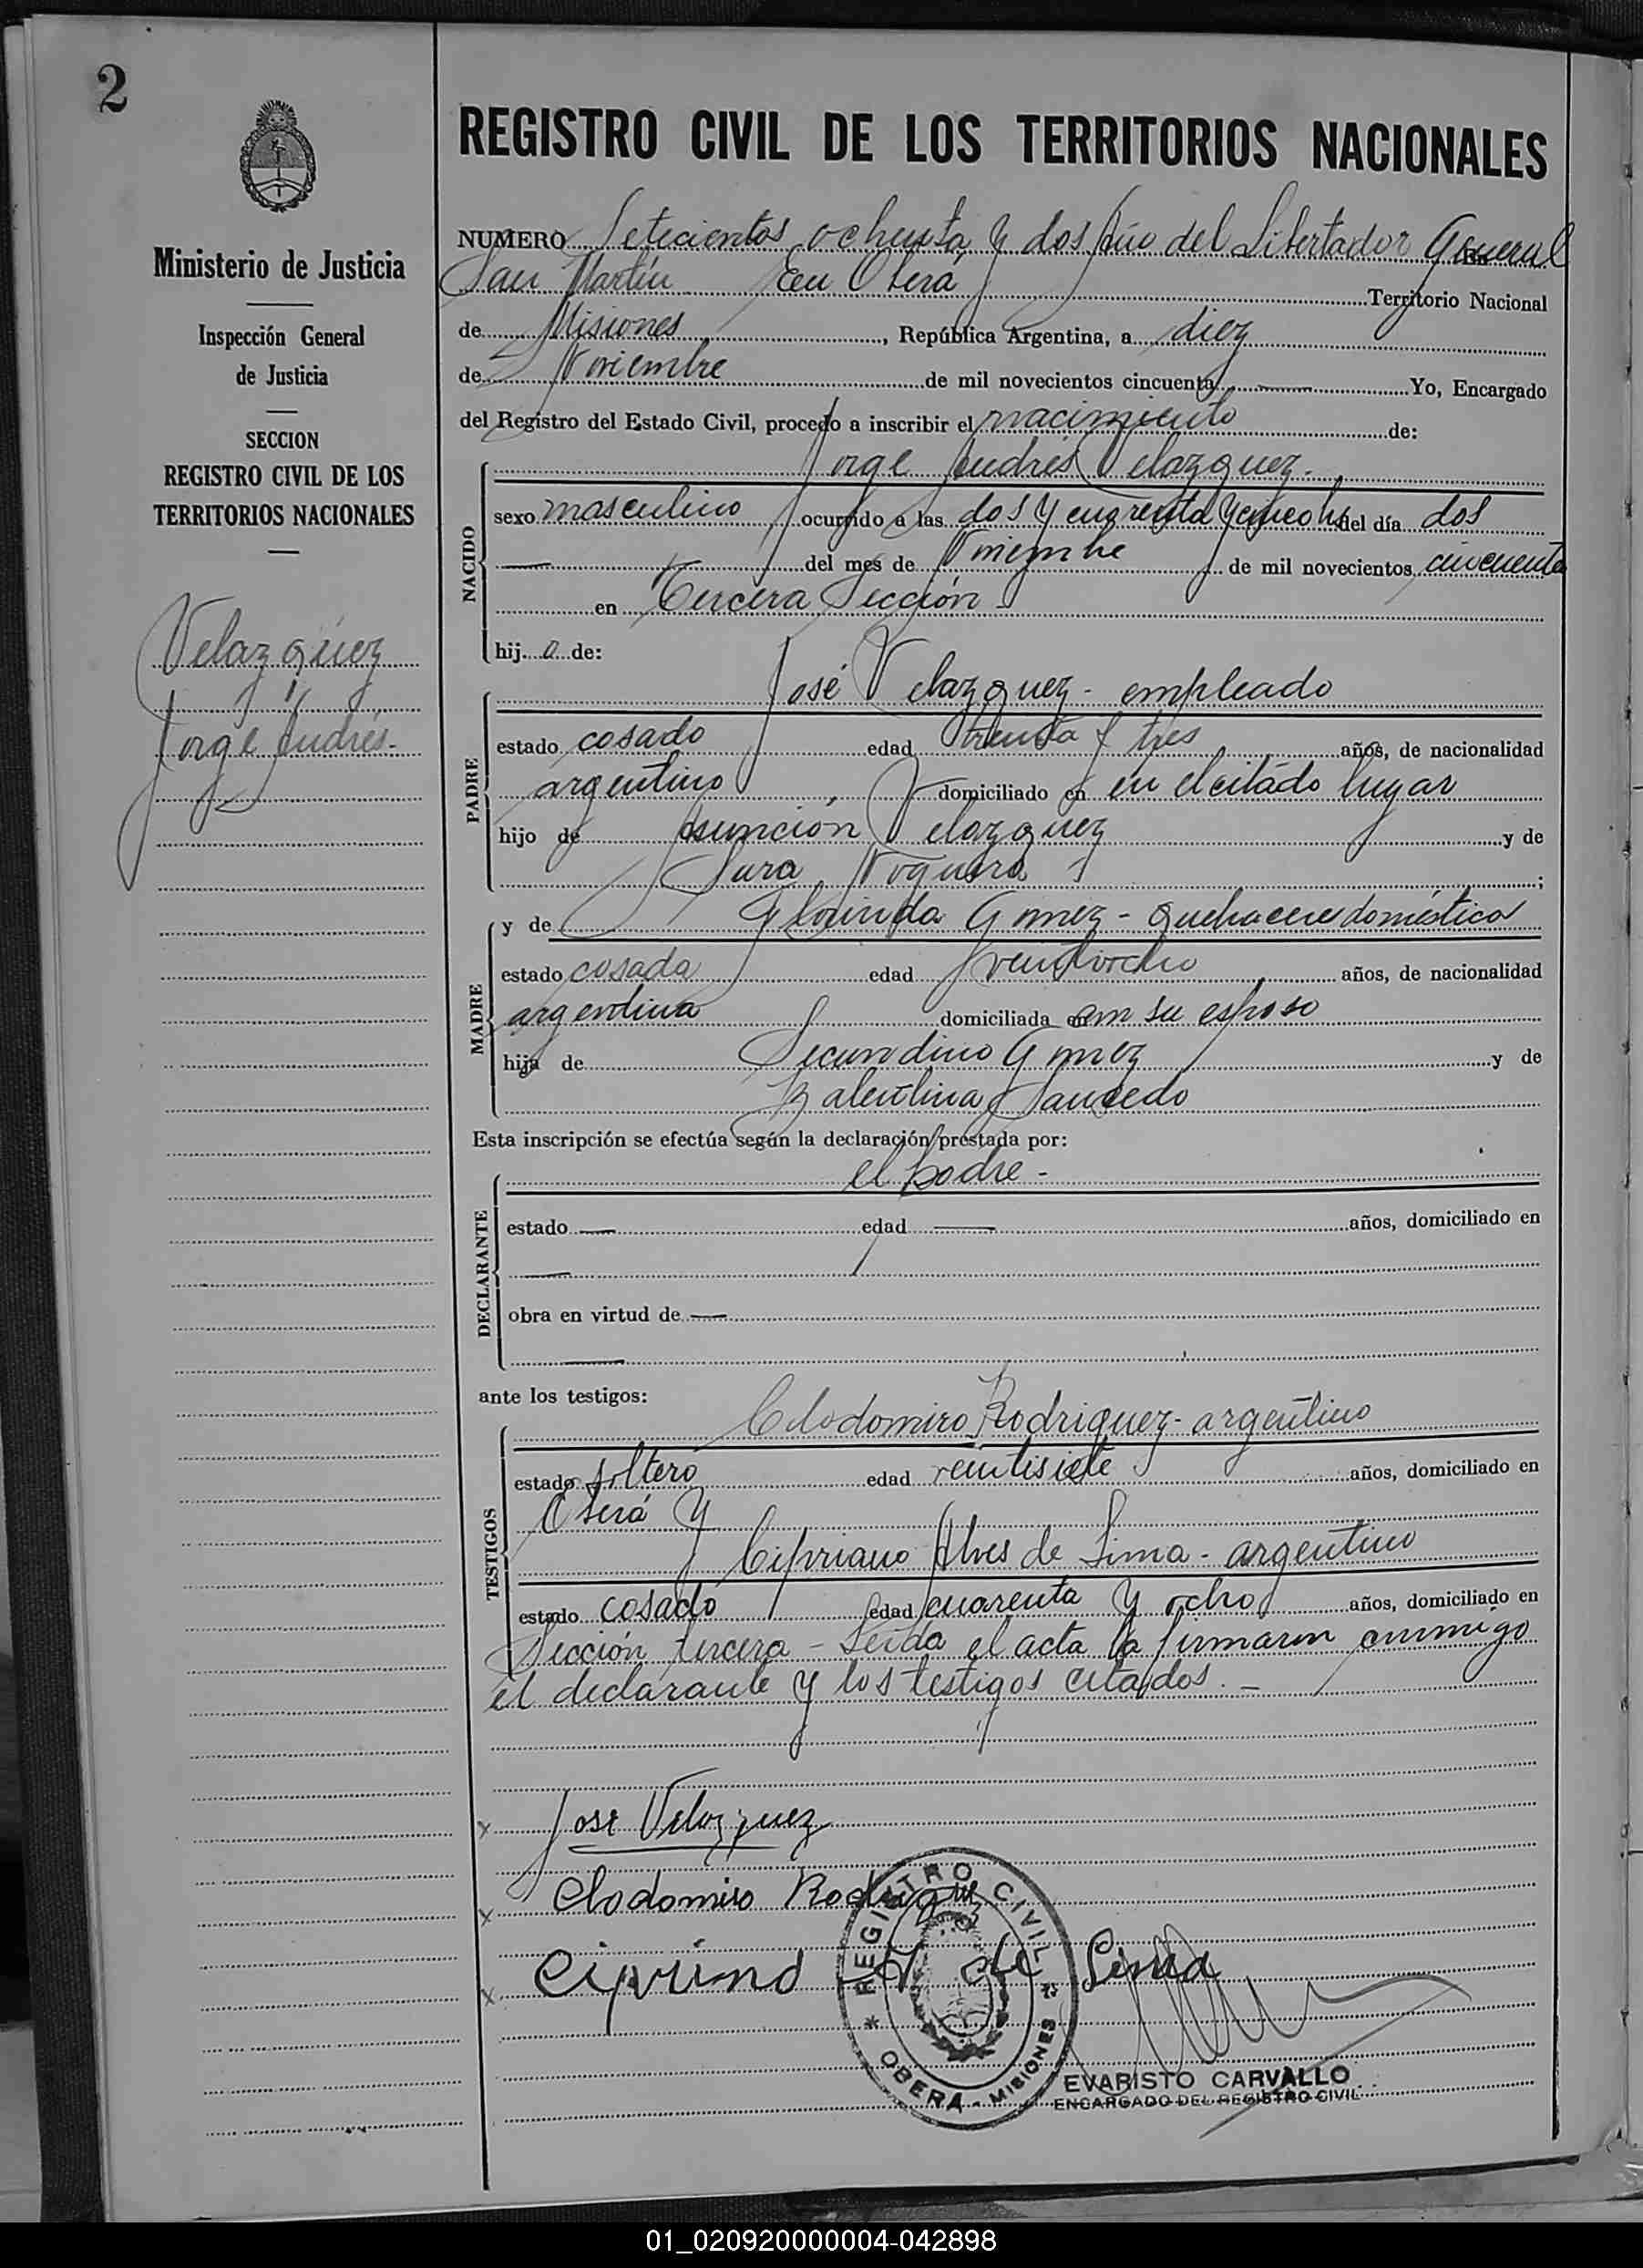 2
Ministerio de Justicia
Inspección General
de Justicia
SECCION
REGISTRO CIVIL DE LOS
TERRITORIOS NACIONALES
Velazquez
Jorge Andrés.-
REGISTRO CIVIL DE LOS TERRITORIOS NACIONALES
NUMERO Setecientos ochenta y dos Año del Libertador General
San Martín En Oberá Territorio Nacional
de Misiones, República Argentina, a diez
de Noviembre de mil novecientos cincuenta Yo, Encargado
del Registro del Estado Civil, procedo a inscribir el nacimiento de:
NACIDO
Jorge Andrés Velazquez.
sexo masculino ocurrido a las dos y cuarenta y cinco hs del día dos
del mes de Noviembre de mil novecientos cincuenta
en Tercera Sección
hij o de:
PADRE
José Velazquez - empleado
estado casado edad treinta y tres años, de nacionalidad
argentino domiciliado en en el citado lugar
hijo de Asunción Velazquez y de
Sara Noguera;
MADRE
y de Gomez - quehaceres domésticos
estado casada edad años, de nacionalidad
argentina domiciliada con su esposo
hija de Secundino Gomez y de
Balentina Saucedo
Esta inscripción se efectúa según la declaración prestada por:
DECLARANTE
el padre -
estado — edad — años, domiciliado en
—
obra en virtud de —
—
ante los testigos:
TESTIGOS
Clodomiro Rodriguez - argentino
estado soltero edad veintisiete años, domiciliado en
Oberá y
Cipriano Alves de Lima - argentino
estado casado edad cuarenta y ocho años, domiciliado en
Sección tercera - Leída el acta la firmaron conmigo
el declarante y los testigos citados. -
x Jose Velazquez
x Clodomiro Rodriguez
x Ciprino A de Lima
REGISTRO CIVIL
* OBERÁ - MISIONES *
EVARISTO CARVALLO
ENCARGADO DEL REGISTRO CIVIL
01_020920000004-042898